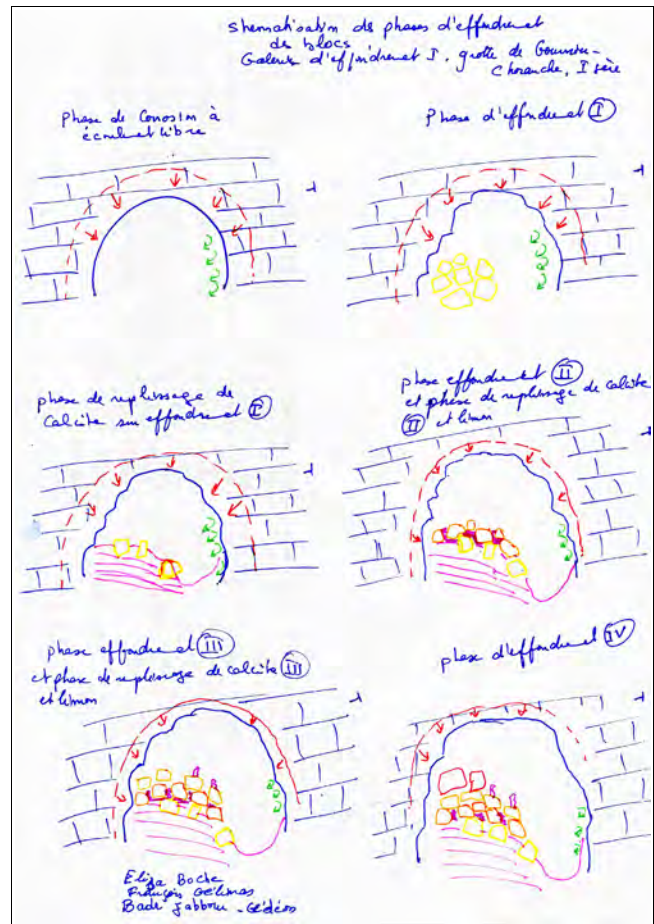 shematisation des phases d'effondremet
des blocs
Galerie d'effondremet I. grotte de Gournier-
Choranche, Isère
phase de Corrosion à
écoulemet libre
Phase d'effondremet I
phase de remplissage de
Calcite sur effondremet I
phase effondremet II
et phase de remplissage de calcite
II et limon
phase effondremet III
et phase de remplissage de calcite III
et limon
phase d'effondremet IV
Eliza Boche
François Gélinas
Bade Jabbour - Gédéon